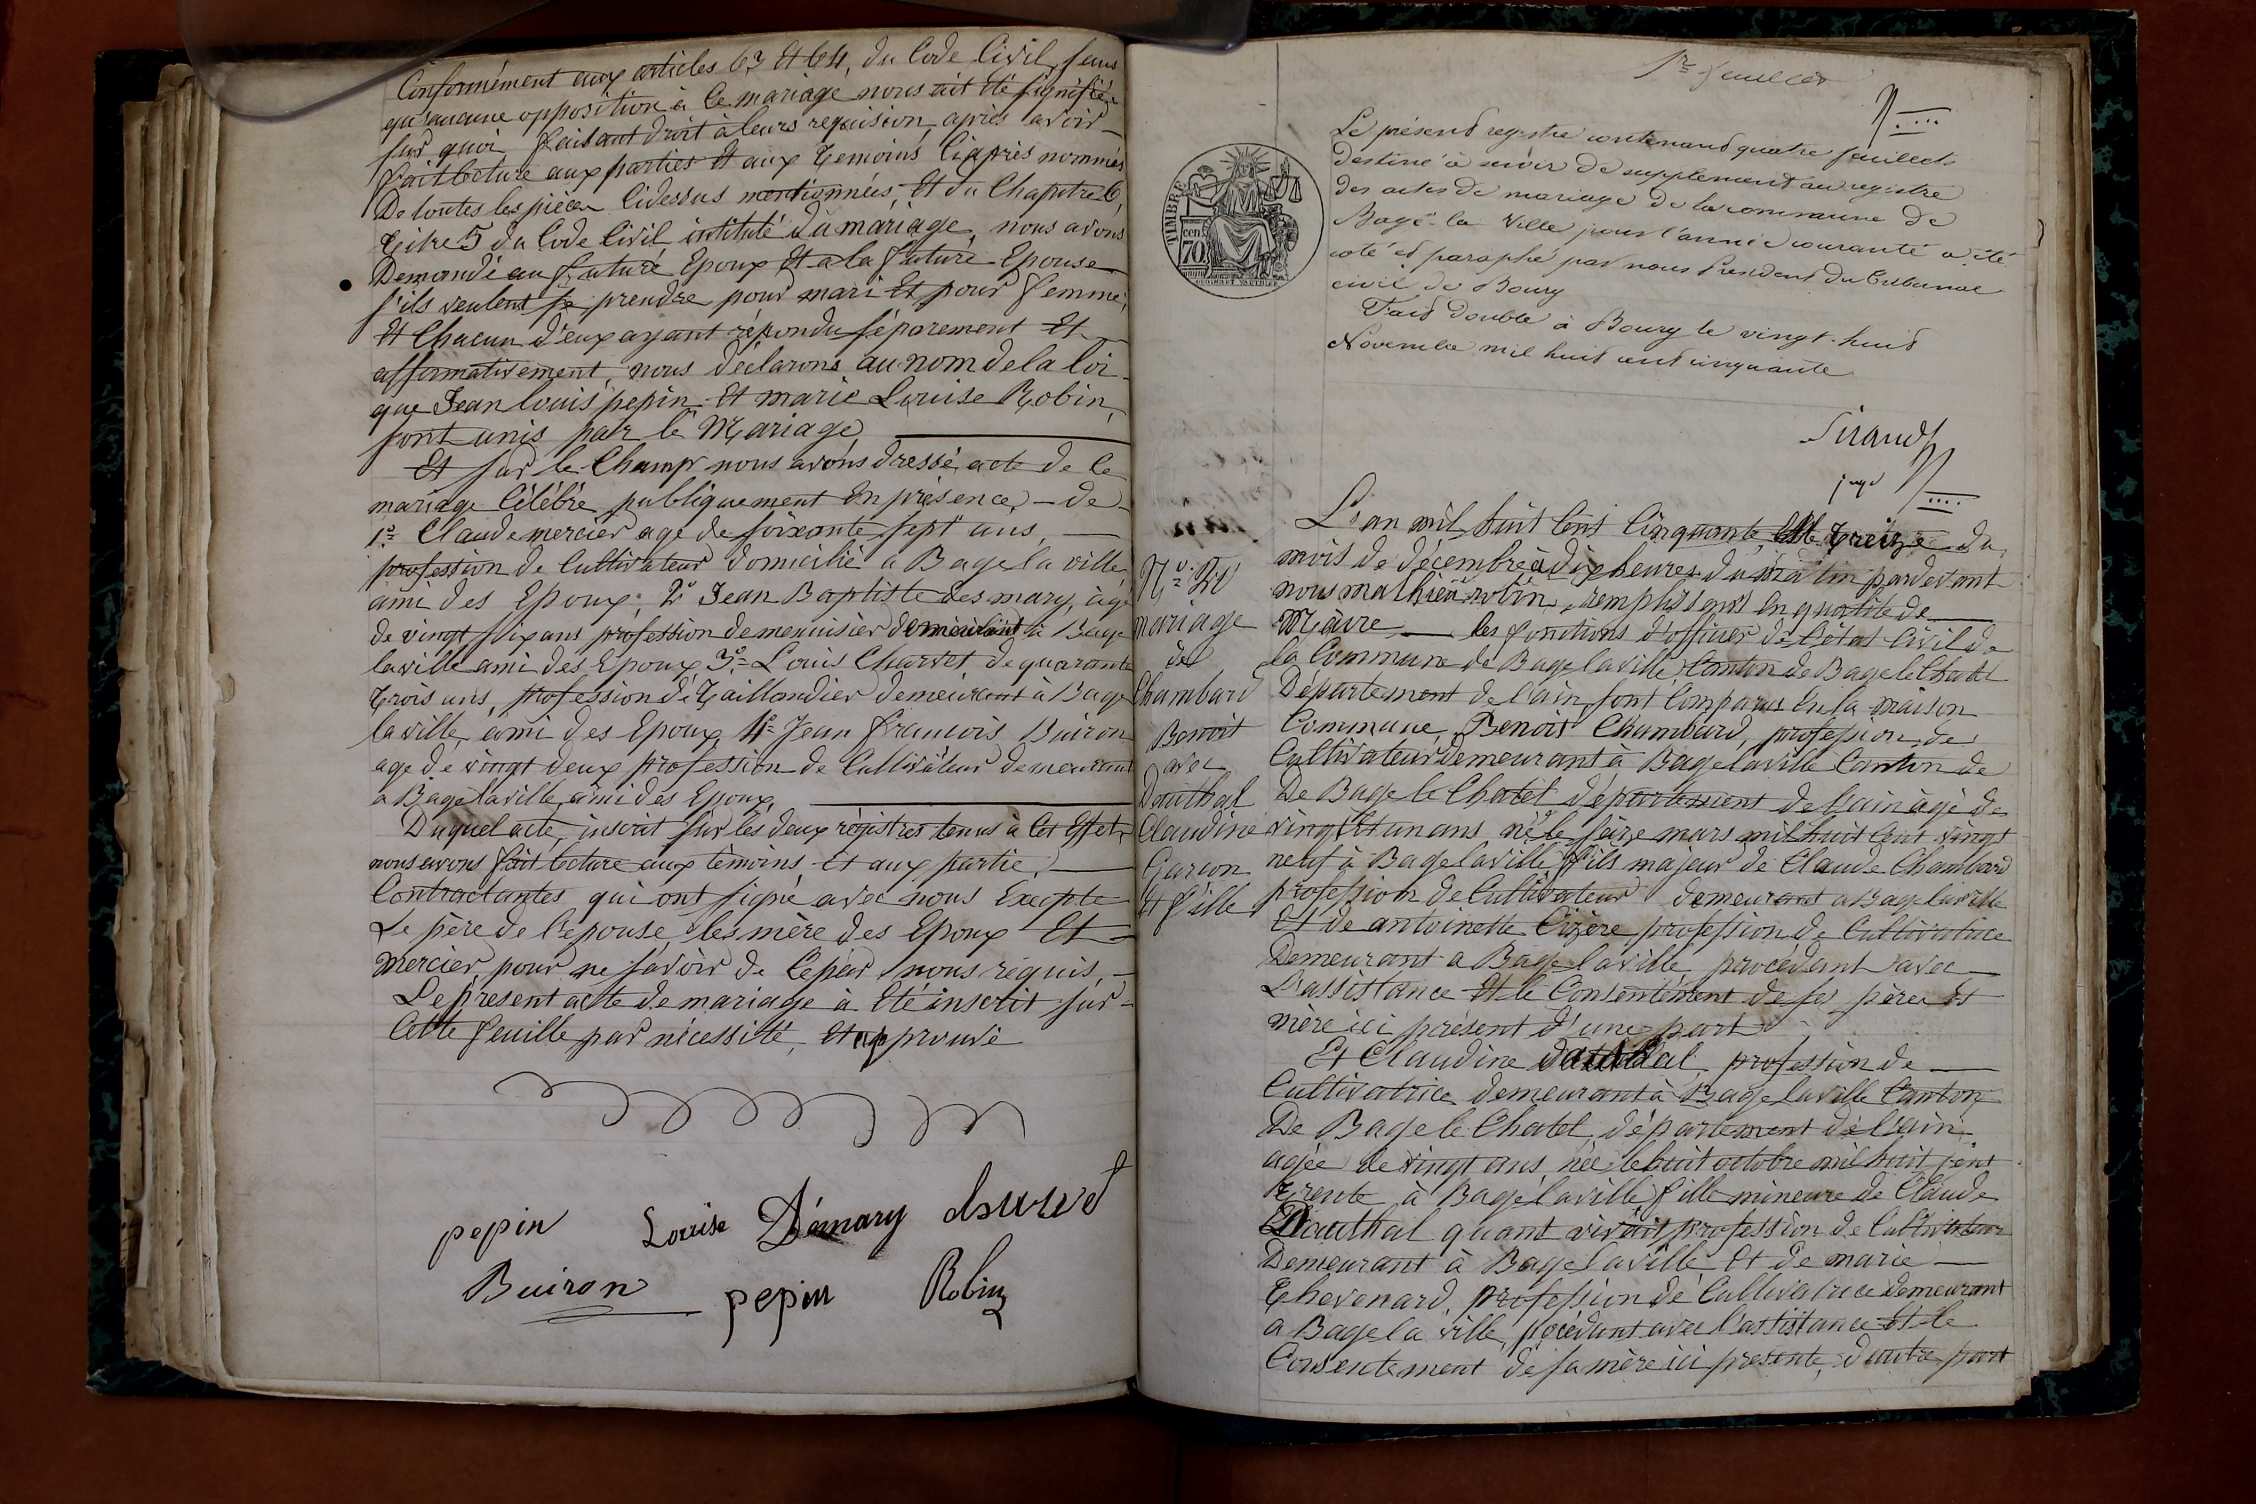 Conformément aux articles 63 et 64, du Code Civil, sans
qu'aucune opposition à ce mariage nous ait été signifiée
sur quoi faisant droit à leurs requision, après avoir
fait lecture aux parties et aux temoins ci après nommés
De toutes les pièces ci dessus mentionnées, et du Chapitre 6,
titre 5 du Code Civil intitulé du mariage, nous avons
Demandé au futur Epoux et a la future Epouse
s'ils veulent se prendre pour mari et pour femme,
Et Chacun d'eux ayant répondu séparement et
affirmativement, nous déclarons au nom de la loi
que Jean Louis pepin et marie Louise Robin,
sont unis par le Mariage,
Et sur le Champ nous avons dressé acte de ce
mariage célébré publiquement en présence, de
1o Claude mercier age de soixante sept ans,
profession de Cultivateur domicilié a Bage la ville
ami des Epoux; 2o Jean Baptiste des mary, agé
de vingt six ans profession de menuisier demeurant à Bage
laville ami des Epoux 3o Louis Churvet de quarante
trois ans, profession de Taillandier demeurant à Bage
laville ami des Epoux 4o Jean francois Buiron
age de vingt deux profession de Cultivateur demeurant
a Bage laville, ami des Epoux,
Duquel acte, inscrit sur les deux régistres tenus à cet Effet,
nous avons fait lecture aux témoins et aux partie
Contractantes qui ont signé avec nous Excepte
Le père de l'épouse, les mère des Epoux et
mercier, pour ne savoir de ce par nous réquis,
Le présent acte de mariage à été inscrit sur
Cette feuille par nécessité, et approuvé
pepin Louise Démary churvet
Buiron pepin Robin
1er feuillet
Le présent registre contenant quatre feuillets
destiné à servir de supplement au registre
des actes de mariage de la commune de
Bagé-la Ville pour l'année courante a été
coté et paraphé par nous President du Tribunal
civil de Bourg
Fait double à Bourg le vingt-huit
Novembre mil huit cent cinquante
TIMBRE
70 cen
Sirand
juge
Mariage
de
Chambard
Benoit
avec
Douthal
Claudine
Garcon
et fille
L'an mil huit Cent Cinquante, et le treize du
mois de décembre à dix heures du matin pardevant
nous mathieu robin, remplissant en qualité de
Maire, les fonctions d'officier de l'état Civil de
la Commune de Bage laville, Canton de Bage le Chatel
Département de l'ain, sont Comparus en la maison
Commune, Benoit Chambard, profession de
Cultivateur demeurant à Bage laville Canton de
De Bage le Chatel département de l'ain agé de
vingt et un ans né le seize mars mil huit Cent vingt
neuf à Bage laville, fils majeur de Claude Chambard
profession de Cultivateur demeurant a Bage laville
Et de antoinette Cizère profession de Cultivatrice
Demeurant a Bage laville, procédant avec
L'assistance et le Consentement de ses père et
mère ici présent d'une part
Et Claudine Douthal profession de
Cultivatrice demeurant à Bage laville Canton
De Bage le Chatel, département de l'ain
agée de vingt ans née le huit octobre mil huit cent
trente à Bage laville fille mineure de Claude
Douthal quant vivait profession de Cultivateur
Demeurant à Bage laville et de marie
Thevenard, profession de Cultivatrice demeurant
a Bage la ville, procédant avec l'assistance et le
Consentement de sa mère ici présente, d'autre part